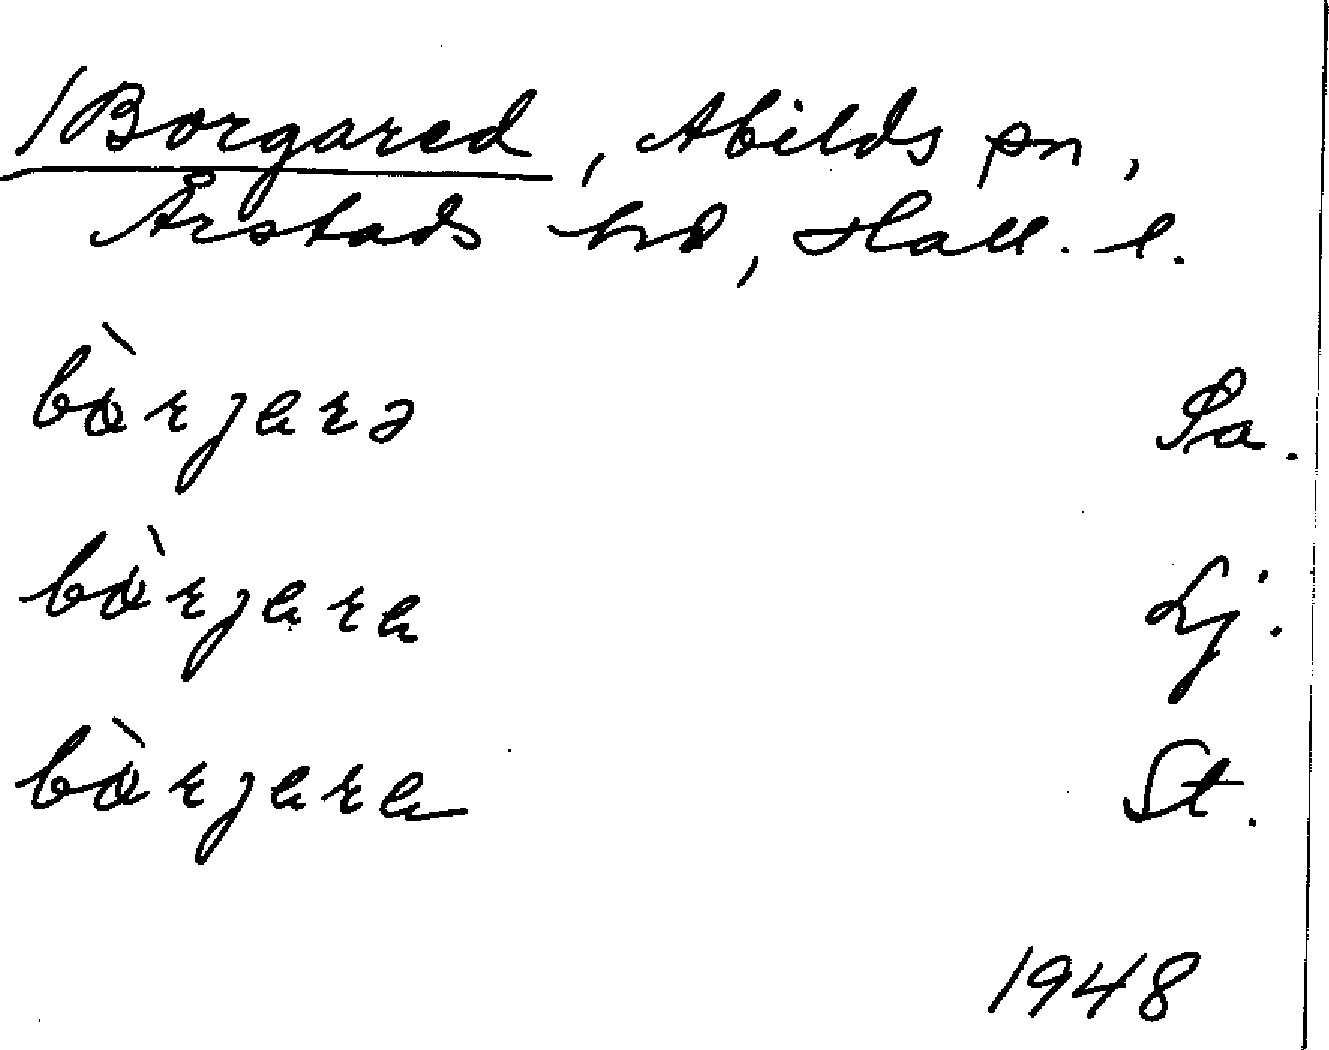 Borgared, Abilds sn,
Årstads hd, Hall. l.
bòrjarə Pa.
bòrjara Lj.
bòrjara St.
1948